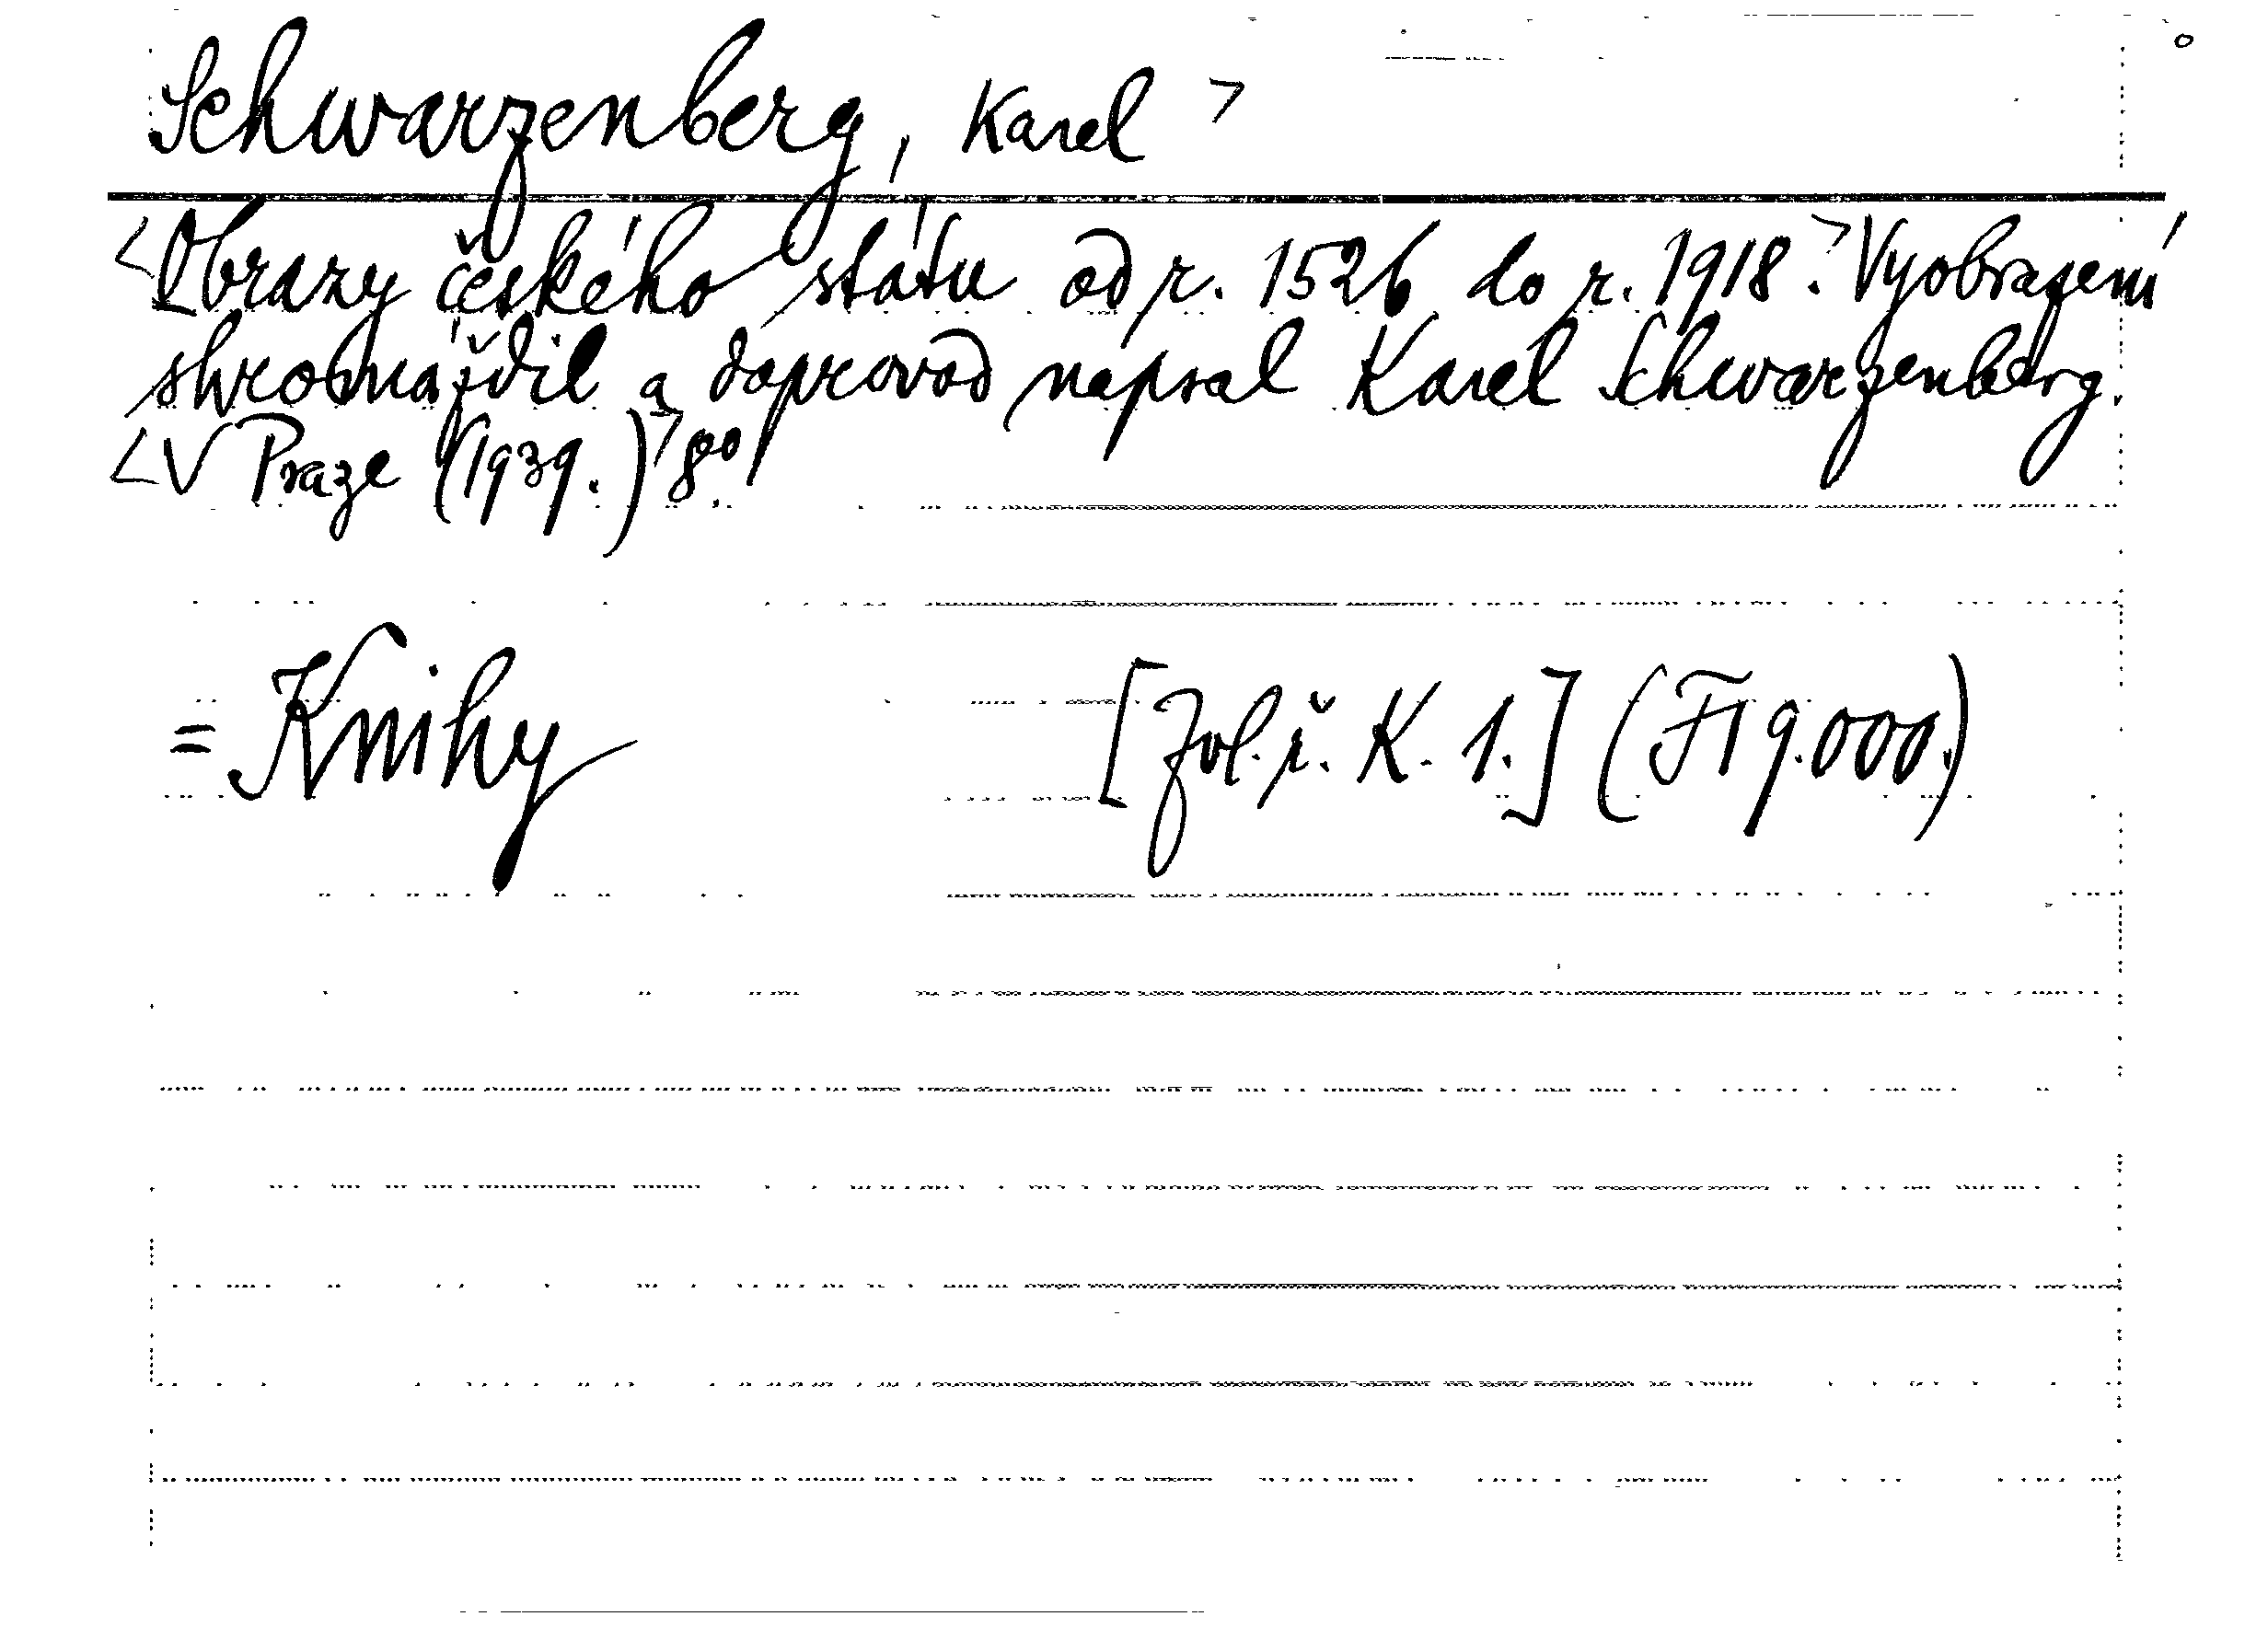 Schwarzenberg, Karel >
<Obrazy českého státu od r. 1526 do r. 1918.> Vyobrazení
shromáždil a doprovod napsal Karel Schwarzenberg.
<V Praze (1939.)> 8°.
= Knihy [Zvl. ř. K. 1.] (F19.000.)